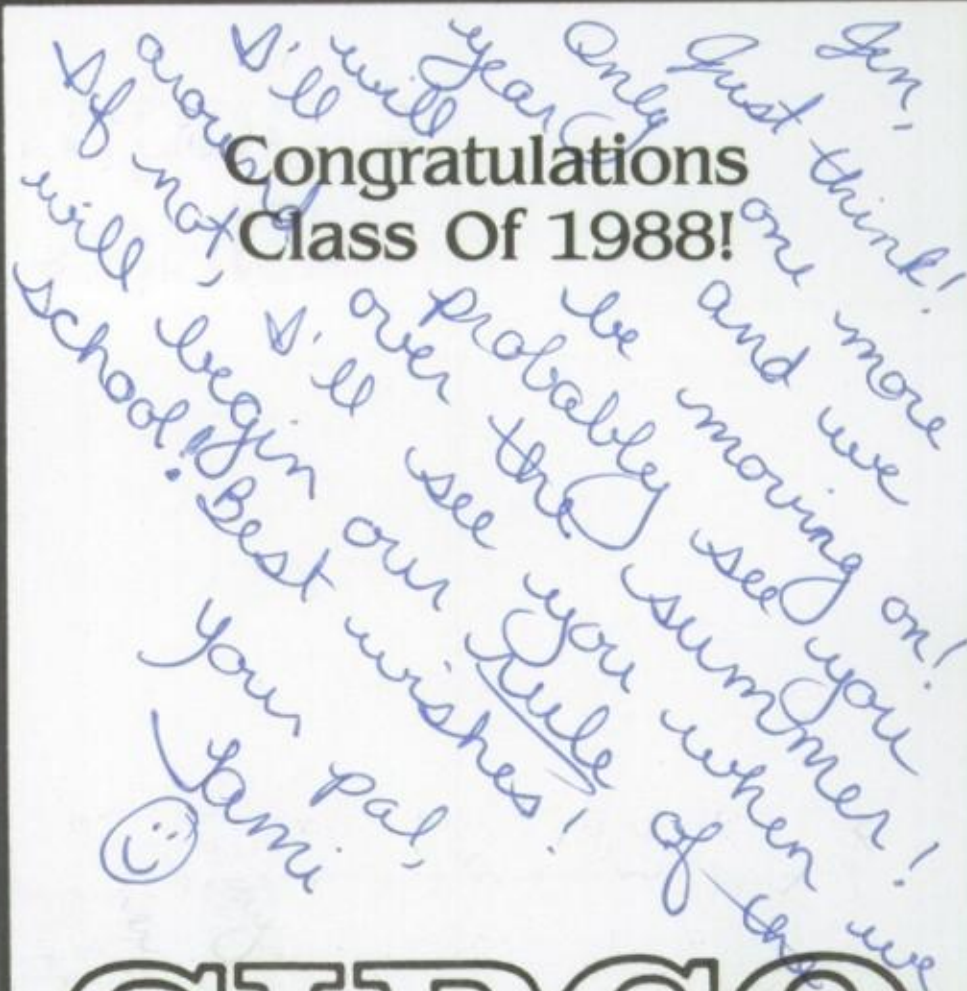 Congratulations
Class Of 1988!
Jen,
Just think!
Only one more
year and we
will be moving on!
I'll probably see you
around over the summer!
If not, I'll see you when we
will begin our rule of the
school! Best wishes!
Your pal,